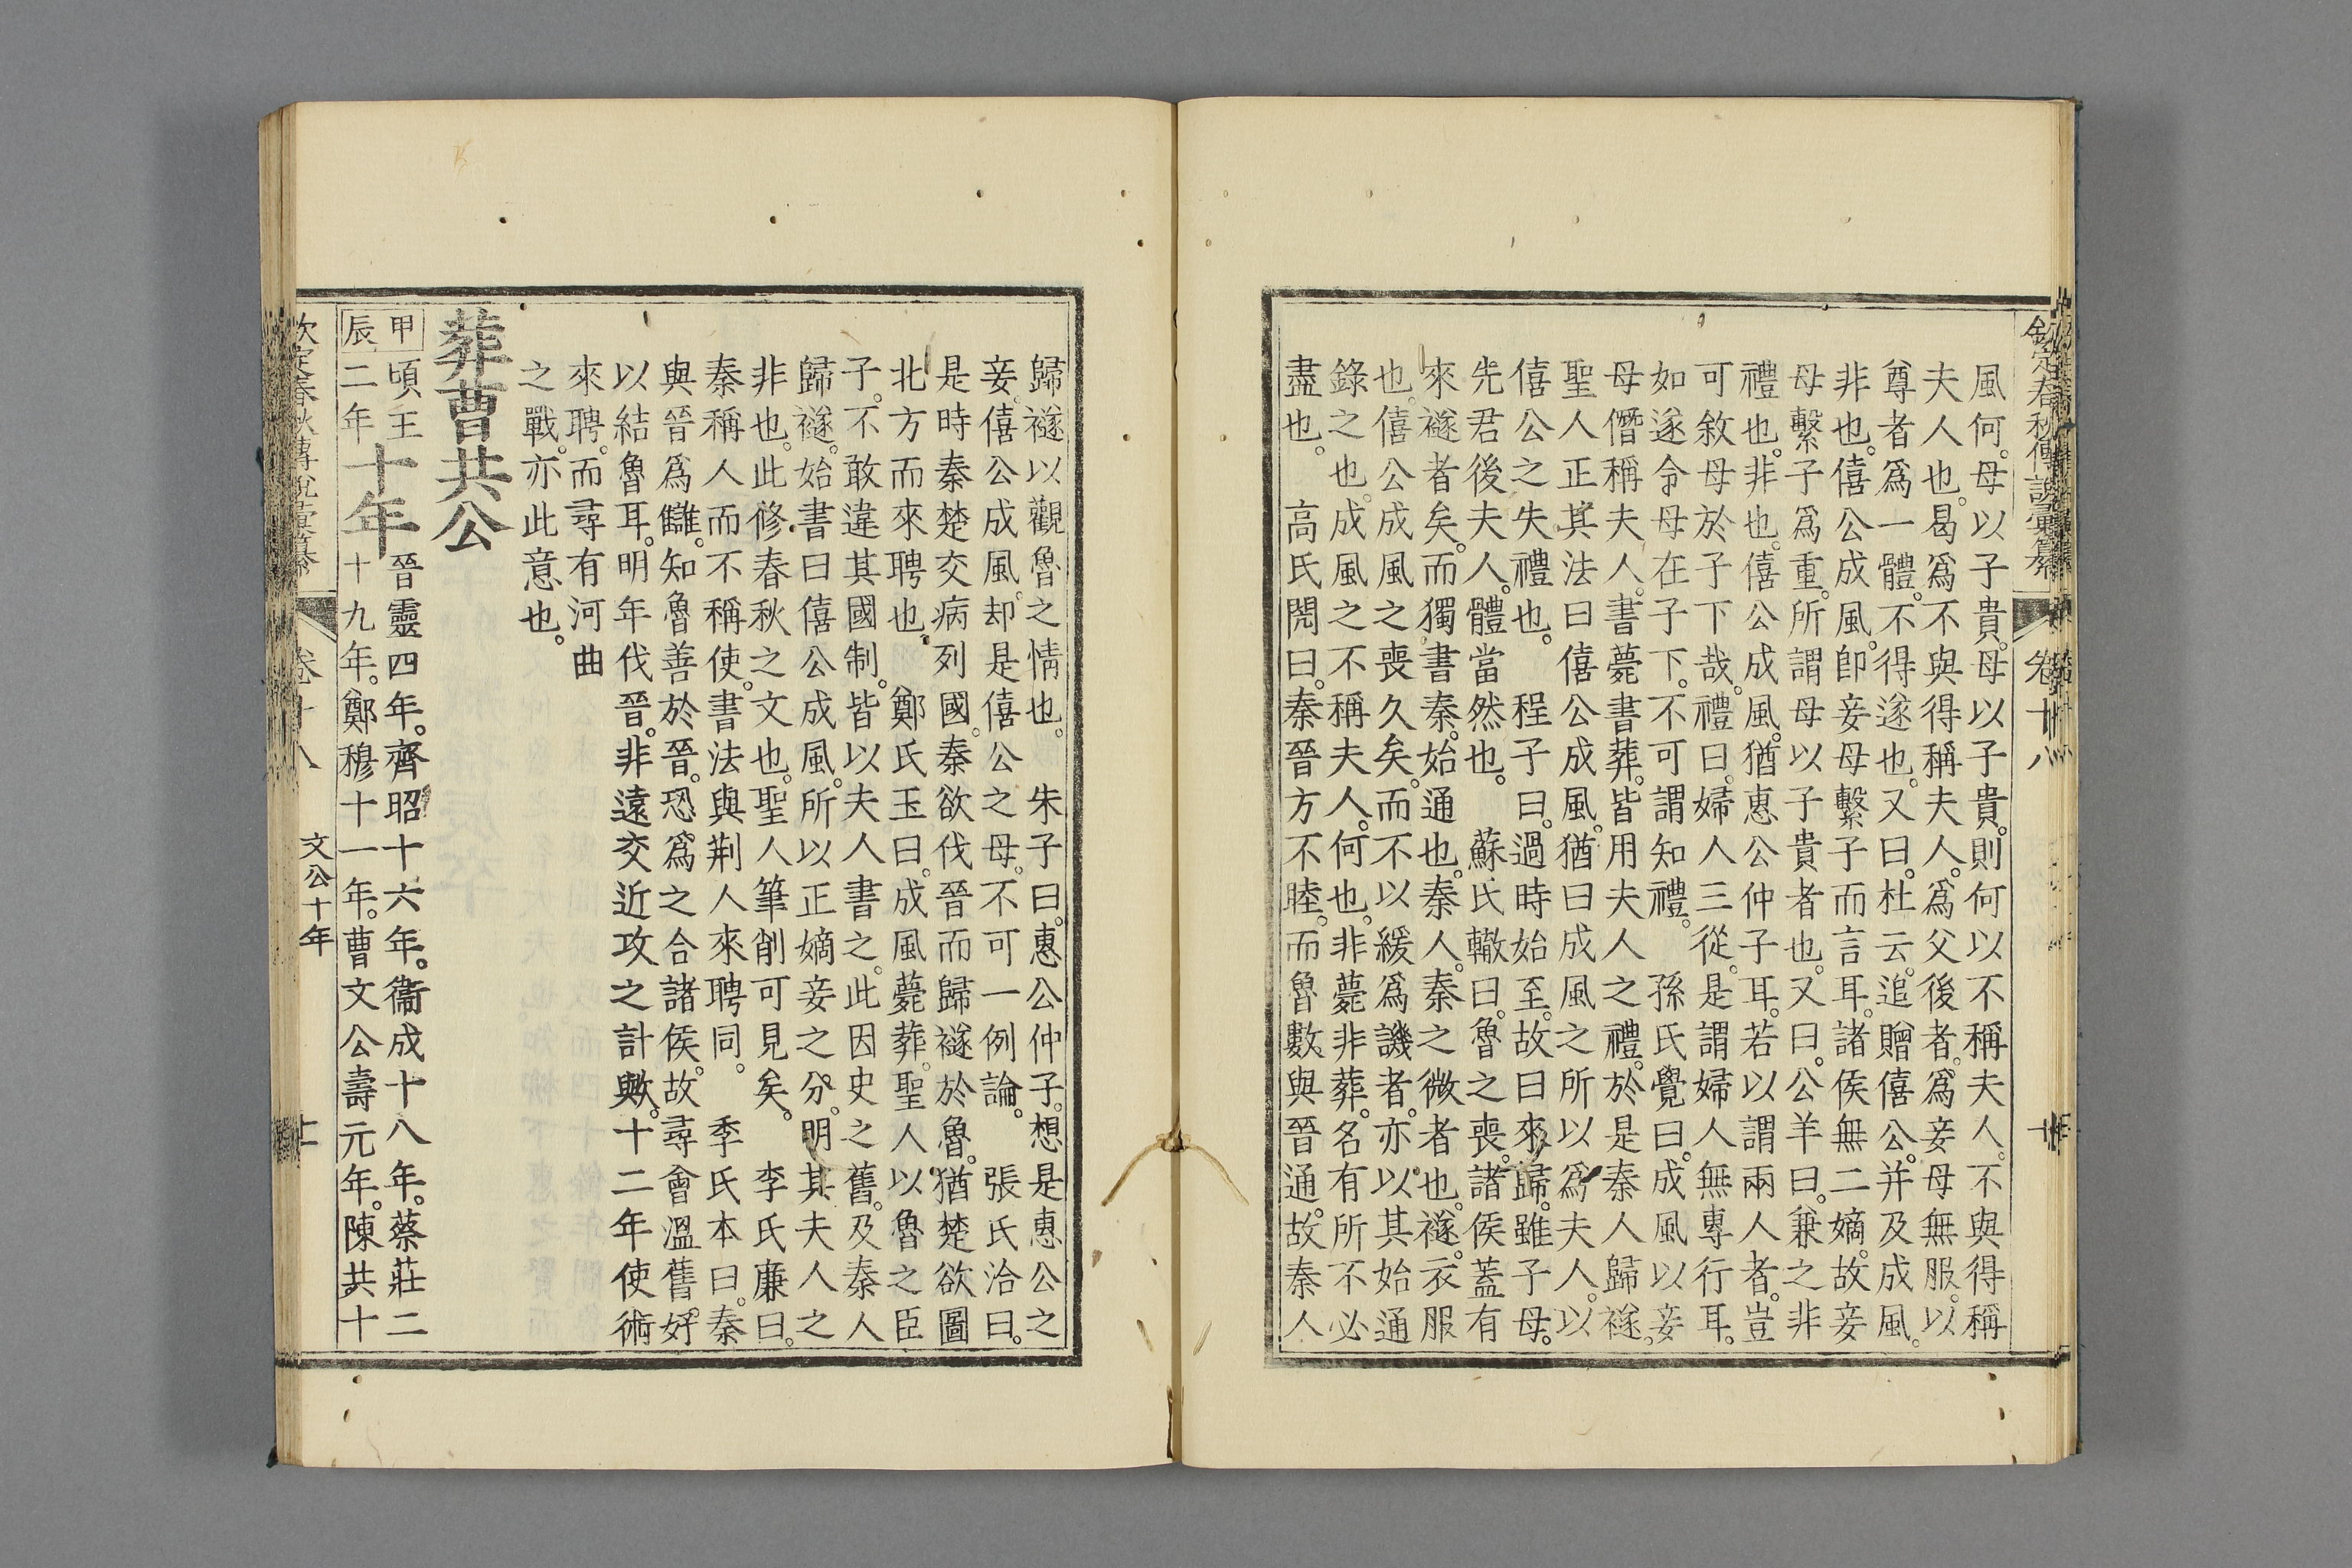 欽定春秋傳說彙纂 卷十八
風何。母以子貴。母以子貴。則何以不稱夫人。不與得稱
夫人也。曷爲不與得稱夫人。爲父後者。爲妾母無服。以
尊者爲一體。不得遂也。又曰。杜云。追贈僖公。并及成風。
非也。僖公成風。卽妾母繫子而言耳。諸侯無二嫡。故妾
母繫子爲重。所謂母以子貴者也。又曰。公羊曰。兼之非
禮也。非也。僖公成風。猶惠公仲子耳。若以謂兩人者。豈
可敘母於子下哉。禮曰。婦人三從。是謂婦人無專行耳。
如遂令母在子下。不可謂知禮。 孫氏覺曰。成風以妾
母僭稱夫人。書薨書葬。皆用夫人之禮。於是秦人歸襚。
聖人正其法曰僖公成風。猶曰成風之所以爲夫人。以
僖公之失禮也。 程子曰。過時始至。故曰來歸。雖子母。
先君後夫人。體當然也。 蘇氏轍曰。魯之喪。諸侯蓋有
來襚者矣。而獨書秦。始通也。秦人。秦之微者也。襚。衣服
也。僖公成風之喪久矣。而不以緩爲譏者。亦以其始通
錄之也。成風之不稱夫人。何也。非薨非葬。名有所不必
盡也。 高氏閌曰。秦晉方不睦。而魯數與晉通。故秦人
歸襚以觀魯之情也。 朱子曰。惠公仲子。想是惠公之
妾。僖公成風。却是僖公之母。不可一例論。 張氏洽曰。
是時秦楚交病列國。秦欲伐晉而歸襚於魯。猶楚欲圖
北方而來聘也。 鄭氏玉曰。成風薨葬。聖人以魯之臣
子。不敢違其國制。皆以夫人書之。此因史之舊。及秦人
歸襚。始書曰僖公成風。所以正嫡妾之分。明其夫人之
非也。此修春秋之文也。聖人筆削可見矣。 李氏廉曰。
秦稱人而不稱使。書法與荆人來聘同。 季氏本曰。秦
與晉爲讎。知魯善於晉。恐爲之合諸侯。故尋會溫舊好。
以結魯耳。明年伐晉。非遠交近攻之計歟。十二年使術
來聘。而尋有河曲
之戰。亦此意也。
葬曹共公
甲辰 頃王二年 十年 晉靈四年。齊昭十六年。衞成十八年。蔡莊二
十九年。鄭穆十一年。曹文公壽元年。陳共十
欽定春秋傳說彙纂 卷十八 文公十年